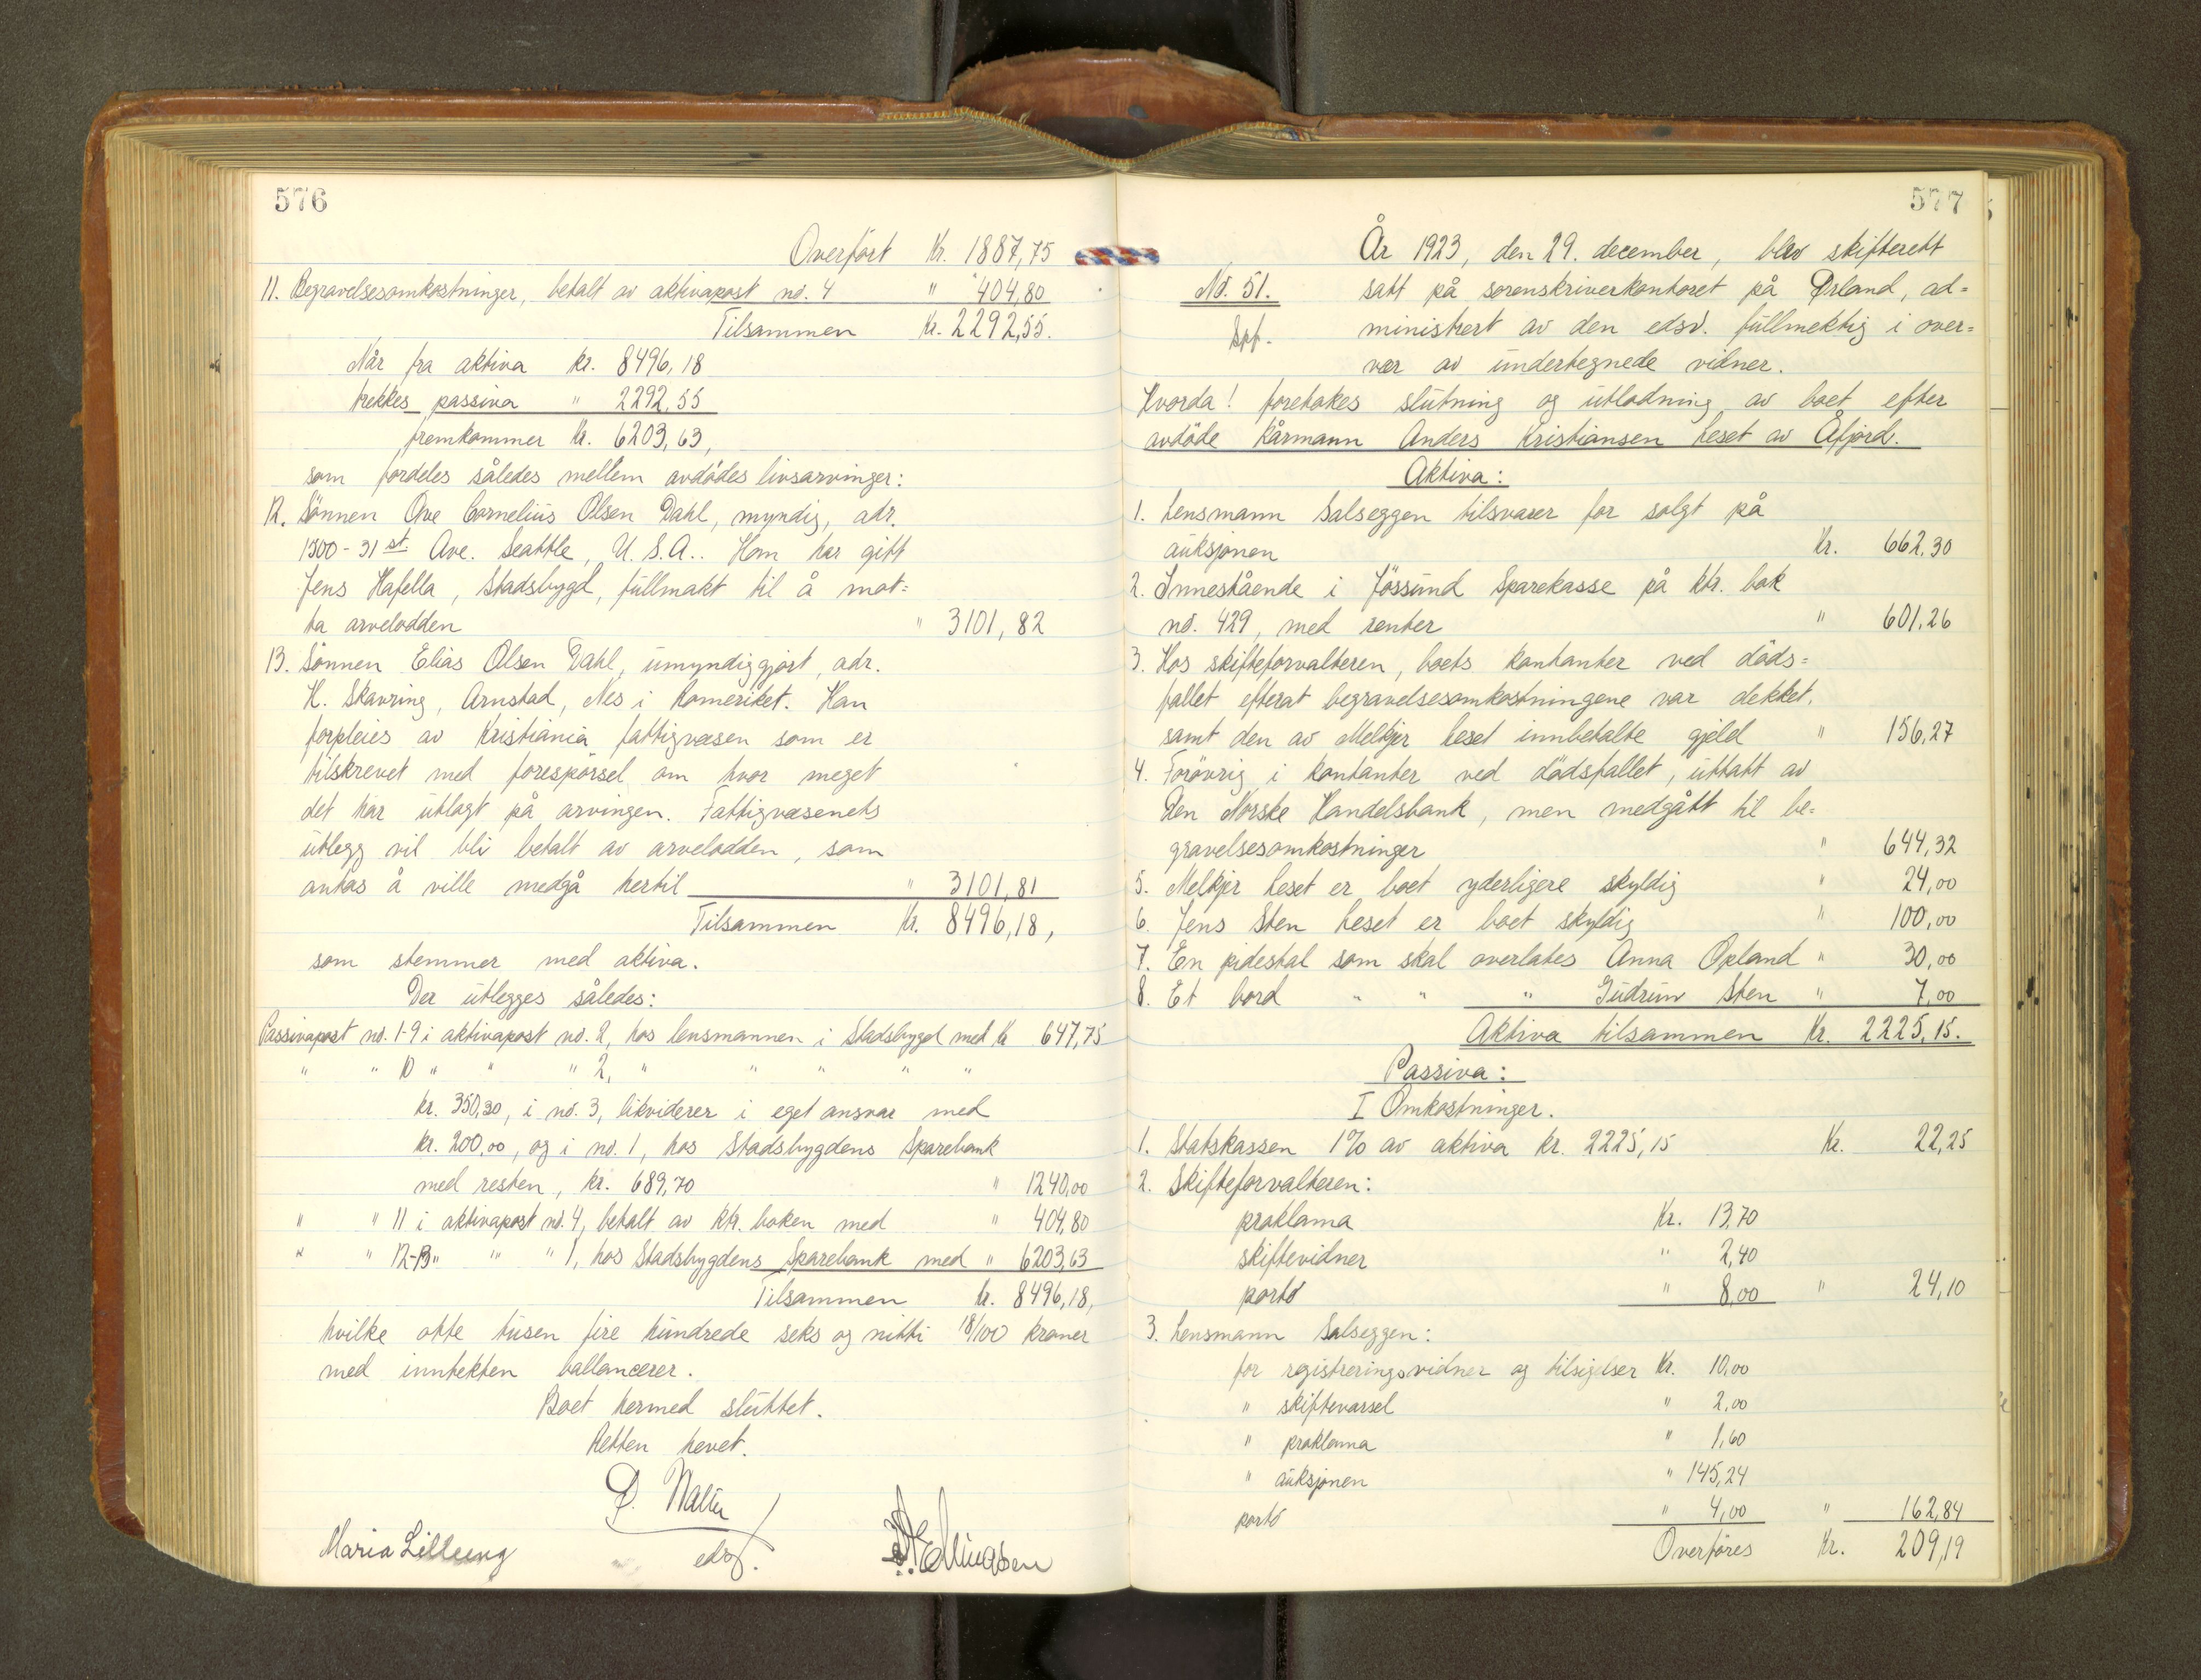 576
Overført Kr. 1887,75
11. Begravelsesomkostninger, betalt av aktivapost no. 4 " 404,80
Tilsammen Kr. 2292,55.
Når fra aktiva kr. 8496,18
trekkes passiva " 2292,55
fremkommer Kr. 6203,63,
som fordeles således mellem avdødes livsarvinger:
12. Sönnen Ove Cornelius Olsen Dahl, myndig, adr.
1300-31st Ave. Seattle, U.S.A.. Han har gitt
Jens Hafella, Stadsbygd, fullmakt til å mot=
ta arvelodden " 3101,82
13. Sönnen Elias Olsen Dahl, umyndiggjort, adr.
H. Skavring, Arnstad, Nes i Romeriket. Han
forpleies av Kristiania fattigvæsen som er
tilskrevet med forespörsel om hvor meget
det har utlagt på arvingen. Fattigvæsenets
utlegg vil bli betalt av arvelodden, som
antas å ville medgå hertil " 3101,81
Tilsammen Kr. 8496,18,
som stemmer med aktiva.
Der utlegges således:
Passivapost no. 1-9 i aktivapost no. 2, hos lensmannen i Stadsbygd med kr 647,75
" " 10 " " " 2, " " " " "
kr. 350,30, i no. 3, likviderer i eget ansvar med
kr. 200,00, og i no. 1, hos Stadsbygdens Sparebank
med resten, kr. 689,70 " 1240,00
" " 11 i aktivapost no. 4, betalt av ktr. boken med " 404,80
" " 12-13 " " " 1, hos Stadsbygdens Sparebank med " 6203,63
Tilsammen kr. 8496,18,
hvilke otte tusen fire hundrede seks og nitti 18/100 kroner
med inntekten ballancerer.
Boet hermed sluttet.
Retten hevet.
Maria Lilleeng
edsf.
577
År 1923, den 29. december, blev skifterett
No. 51. satt på sorenskriverkontoret på Ørland, ad=
ministrert av den edsv. fullmektig i over=
vær av undertegnede vidner.
Hvorda! foretokes slutning og utlodning av boet efter
avdöde kårmann Anders Kristiansen Reset av Åfjord.
Aktiva:
1. Lensmann Salseggen tilsvarer for solgt på
auksjonen Kr. 662,30
2. Innestående i Jössund Sparekasse på ktr. bok
no. 429, med renter " 601,26
3. Hos skifteforvalteren, boets kontanter ved döds=
fallet efterat begravelsesomkostningene var dekket,
samt den av Melkjer Reset innbetalte gjeld " 156,27
4. Forövrig i kontanter ved dödsfallet, uttatt av
Den Norske Handelsbank, men medgått til be=
gravelsesomkostninger " 644,32
5. Melkjer Reset er boet yderligere skyldig " 24,00
6. Jens Sten Reset er boet skyldig " 100,00
7. En pidestal som skal overlates Anna Opland " 30,00
8. Et bord " " " Gudrun Sten " 7,00
Aktiva tilsammen Kr. 2225,15.
Passiva:
I Omkostninger.
1. Statskassen 1% av aktiva kr. 2225,15 Kr. 22,25
2. Skifteforvalteren:
proklama Kr. 13,70
skiftevidner " 2,40
porto " 8,00 " 24,10
3. Lensmann Salseggen:
for registreringsvidner og tilsigelser Kr. 10,00
" skiftevarsel " 2,00
" proklama " 1,60
" auksjonen " 145,24
porto " 4,00 " 162,84
Overföres Kr. 209,19